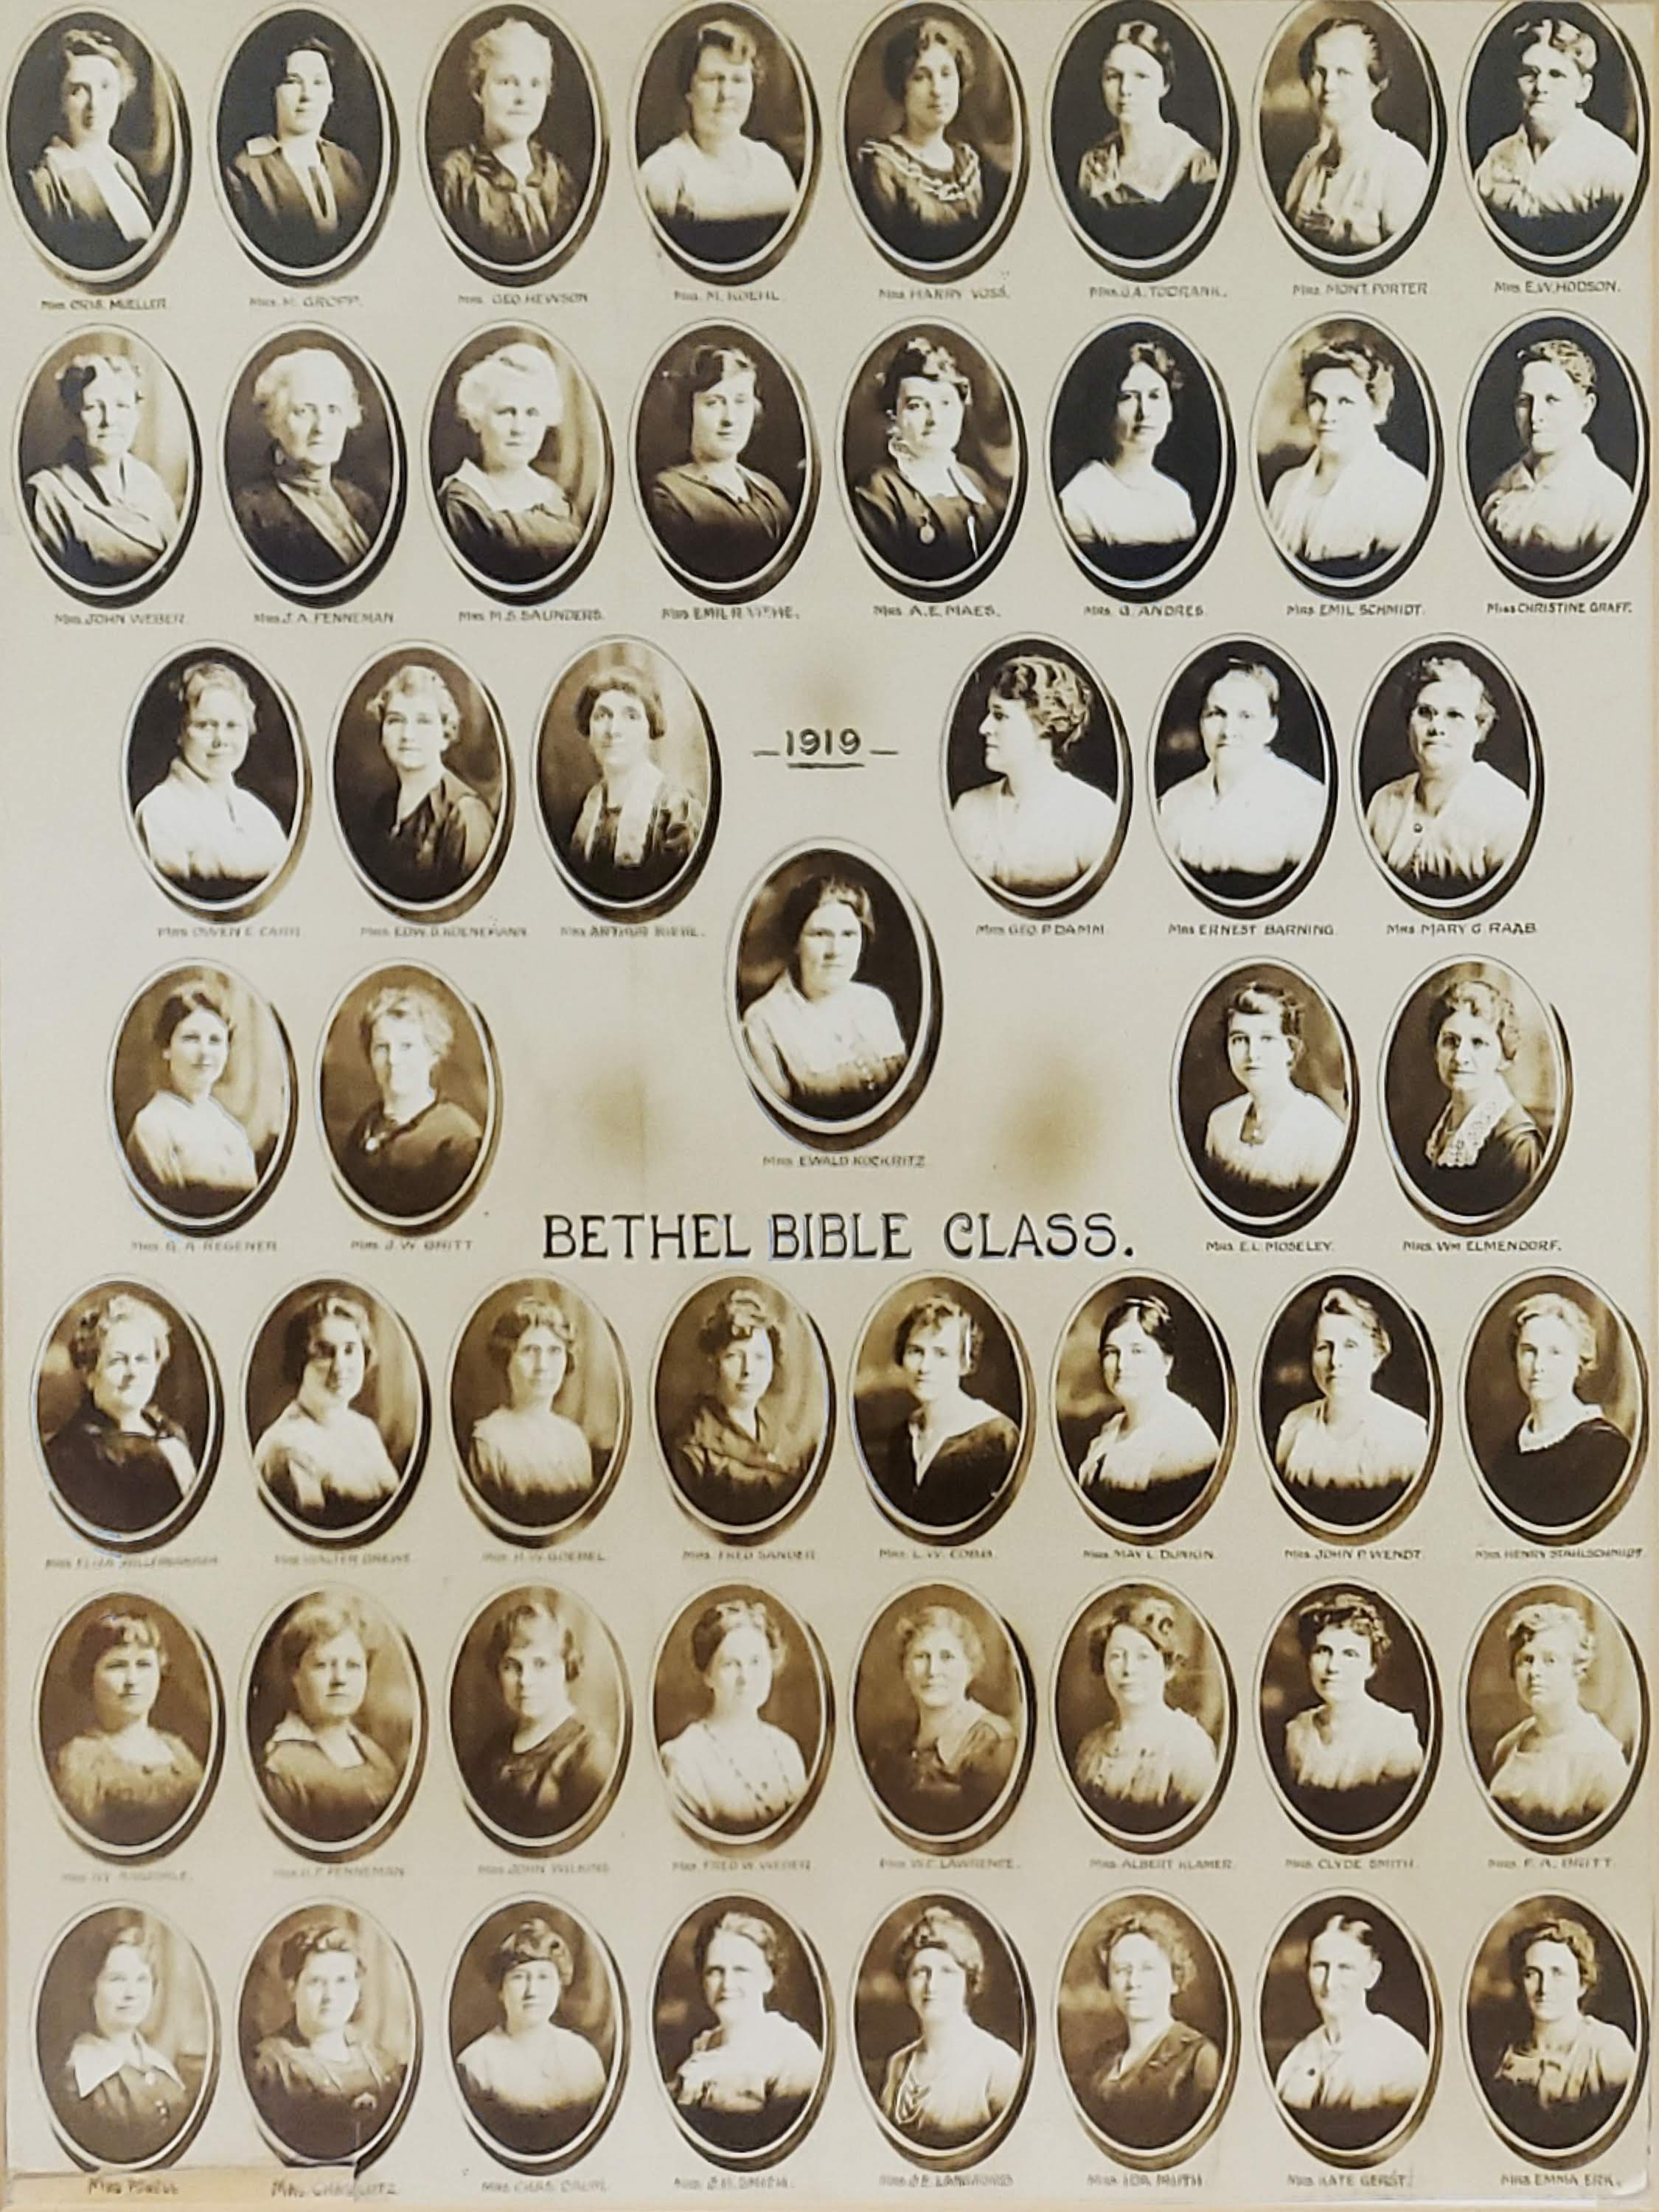 Mrs. CRIS. MUELLER.
Mrs. H. GROPP.
Mrs. GEO. HEWSON
Mrs. M. KOEHL.
Mrs. HARRY VOSS.
Mrs. J.A. TODRANK.
Mrs. MONT. PORTER
Mrs. E.W. HODSON.
Mrs. JOHN WEBER.
Mrs. J.A. FENNEMAN
Mrs. M.S. SAUNDERS.
Mrs EMIL R.
Mrs. A.E. MAES.
Mrs. G. ANDRES.
Mrs. EMIL SCHMIDT.
Miss CHRISTINE GRAFF.
Mrs OWEN E. CARR
Mrs. EDW. KOENEMANN
Mrs ARTHUR
1919
Mrs. GEO. P. DAMM.
Mrs ERNEST BARNING.
Mrs MARY G. RAAB.
Mrs. EWALD KOCKRITZ
Mrs. REGENER
Mrs. J.W. BRITT
Mrs. E.L. MOSELEY.
Mrs. Wm ELMENDORF.
BETHEL BIBLE CLASS.
Mrs.
Mrs WALTER GREWE.
Mrs. H.W. GOEBEL
Mrs. FRED SANDER
Mrs. L.W. COBB.
Mrs. MAY L. DUNKIN.
Mrs. JOHN P. WENDT.
Mrs. HENRY STAHLSCHMIDT.
Mrs
Mrs. FENNEMAN
Mrs. JOHN WILKING
Mrs. FRED W. WEBER
Mrs. W.E. LAWRENCE.
Mrs. ALBERT KLAMER.
Mrs. CLYDE SMITH.
Mrs. F.A. BRITT.
Mrs POWELL
Mrs. CHAS LUTZ
Mrs. CHAS.
Mrs. SMITH.
Mrs. LANGFORD
Mrs. IDA
Mrs. KATE GERST.
Mrs. EMMA ERK.